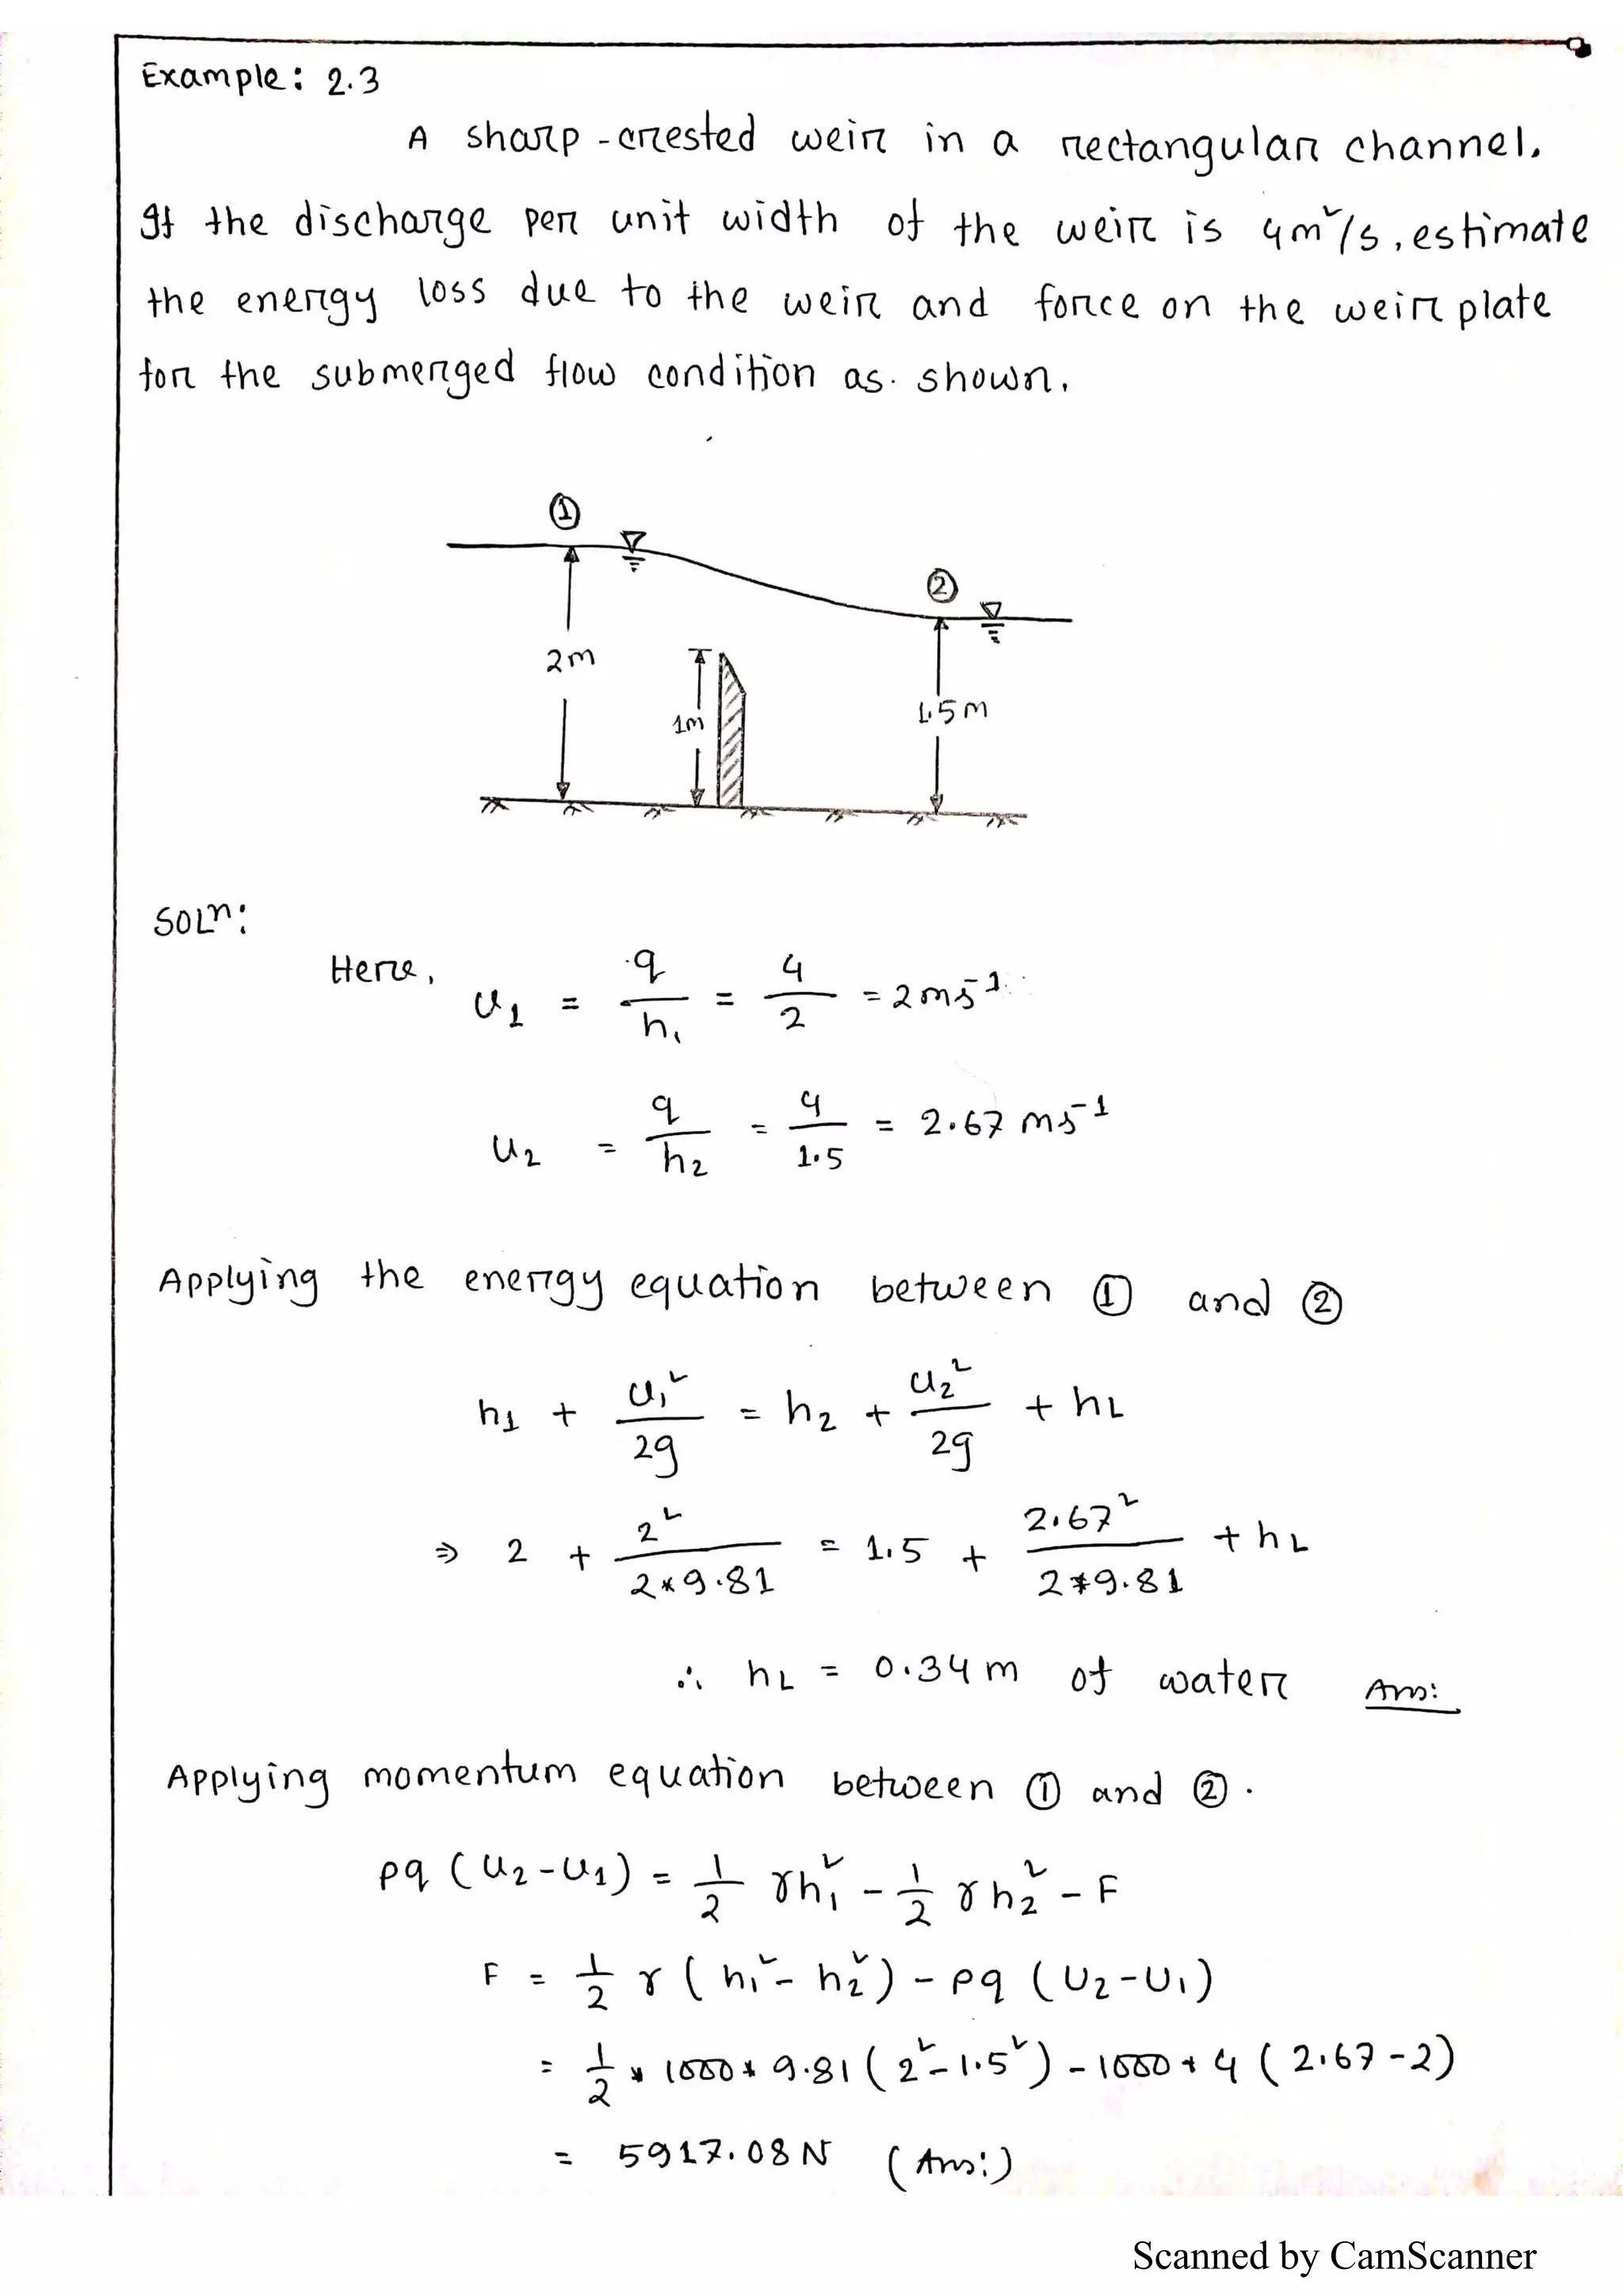 Example: 2.3
A sharp-crested weir in a rectangular channel.
If the discharge per unit width of the weir is 4m²/s, estimate
the energy loss due to the weir and force on the weir plate
for the submerged flow condition as shown.
①
②
2m
1m
1.5m
Solⁿ:
Here, u₁ = q/h₁ = 4/2 = 2ms⁻¹
u₂ = q/h₂ = 4/1.5 = 2.67 ms⁻¹
Applying the energy equation between ① and ②
h₁ + u₁²/2g = h₂ + u₂²/2g + hL
⇒ 2 + 2²/2*9.81 = 1.5 + 2.67²/2*9.81 + hL
∴ hL = 0.34m of water Ans:
Applying momentum equation between ① and ②.
ρq (u₂-u₁) = 1/2 γh₁² - 1/2 γh₂² - F
F = 1/2 γ (h₁² - h₂²) - ρq (u₂-u₁)
= 1/2 * 1000 * 9.81 (2² - 1.5²) - 1000 * 4 (2.67-2)
= 5917.08N (Ans:)
Scanned by CamScanner